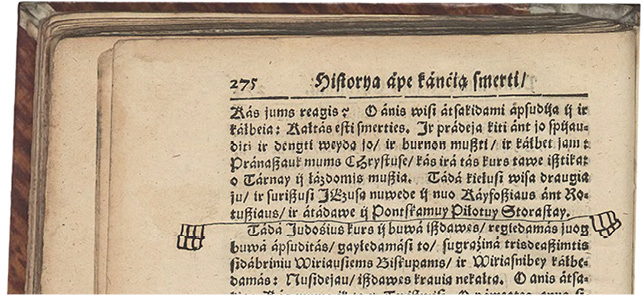 275 Historya ápe káńćią smerti/
Kás jums reagis? O ánis wisi átsakidami ápsudija ij ir
kálbeia: Kaltás esti smerties. Ir prádeja kiti ánt jo spijau-
diti ir dengti weydą jo/ ir burnon mußti/ ir kálbet jam:
Pránaßauk mums CHrystuse/ kás irá tás kurs tawe ißtikat
o Tárnay ij łázdomis mußia. Tádá kielusi wisa draugia
ju/ ir surißusi JEzusą nuwede ij nuo Káyfoßiaus ánt Ro-
tußiaus/ ir átádawe ij Pontskamuy Pilotuy Storastay.
Tádá Judośius kurs ij buwá ißdawes/ regiedamás juog
buwá ápsuditás/ gayledamási to/ sugrąžiná trisdeaßimtis
sidábriniu Wiriausiems Biskupams/ ir Wiriasnibey kálbe-
damás: Nusidejau/ ißdawes krauią nekaltą. O anis átsa-